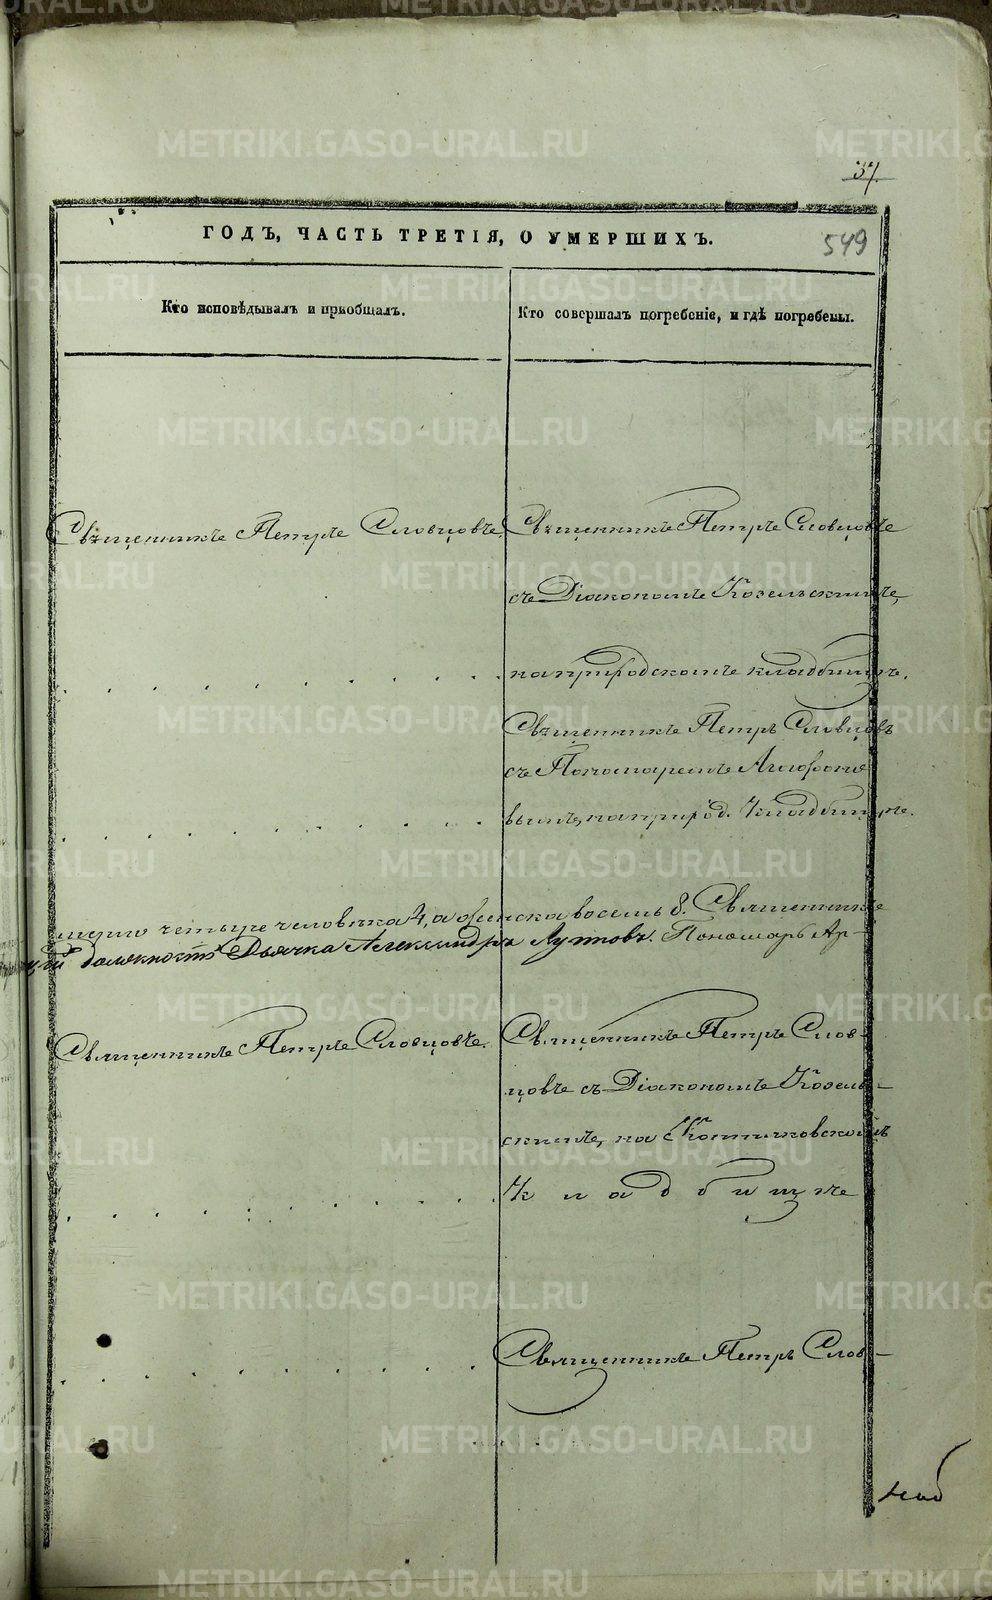 37.
ГОДЪ, ЧАСТЬ ТРЕТІЯ, О УМЕРШИХЪ.
549
Кто исповѣдывалъ и приобщалъ.
Кто совершалъ погребеніе, и гдѣ погребены.
Священникъ Петръ Словцовъ.
Священникъ Петръ Словцовъ
съ Діакономъ Козельскимъ,
на природскомъ кладбищѣ.
Священникъ Петръ Словцовъ
съ Пономаремъ
вымъ, на природ. кладбищѣ.
четыре человѣка 4, а женска восемь 8. Священникъ
должность Дьячка Александръ Лутковъ. Пономарь Ар-
Священникъ Петръ Словцовъ.
Священникъ Петръ Слов-
цовъ съ Діакономъ Козель-
скимъ, на
кладбищѣ
Священникъ Петръ Слов-
METRIKI.GASO-URAL.RU